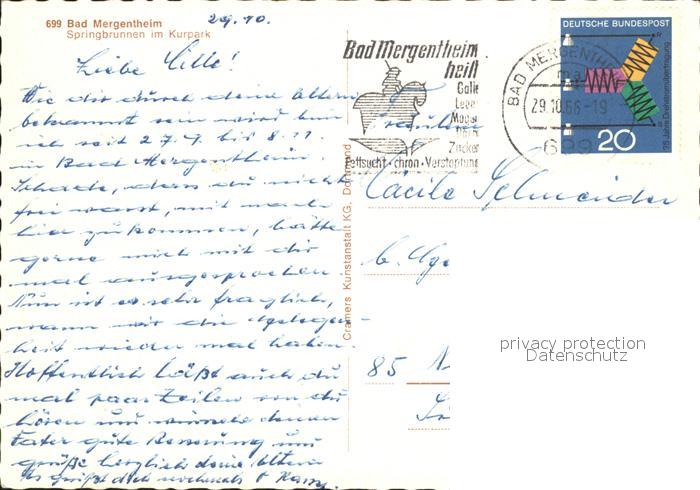 699 Bad Mergentheim
Springbrunnen im Kurpark
29.10.
Liebe Cille!
Wie dir durch deine Eltern
bekannt sein wird bin
ich seit 27.9. bis 8.11.
in Bad Mergentheim
Schade, dass du nicht
frei warst, mit nach
hier zu kommen, hätte
gerne mich mit dir
mal ausgesprochen.
Nun ist es sehr fraglich,
wann wir die Gelegen-
heit wieder mal haben.
Hoffentlich läßt auch du
mal paar Zeilen von du
hören und wünsche deinem
Vater gute Besserung und
grüße herzlich deine Eltern
Es grüßt dich nochmals
Cramers Kunstanstalt KG, Dortmund
Bad Mergentheim
heilt
Galle
Leber
Magen
Darm
Zucker
Fettsucht · chron · Verstopfung
BAD MERGENTHEIM
29.10.66-19
699
DEUTSCHE BUNDESPOST
R
S
20
75 Jahre Drehstromübertragung
Fräulein
Cäcilie Schneider
85 N
privacy protection
Datenschutz